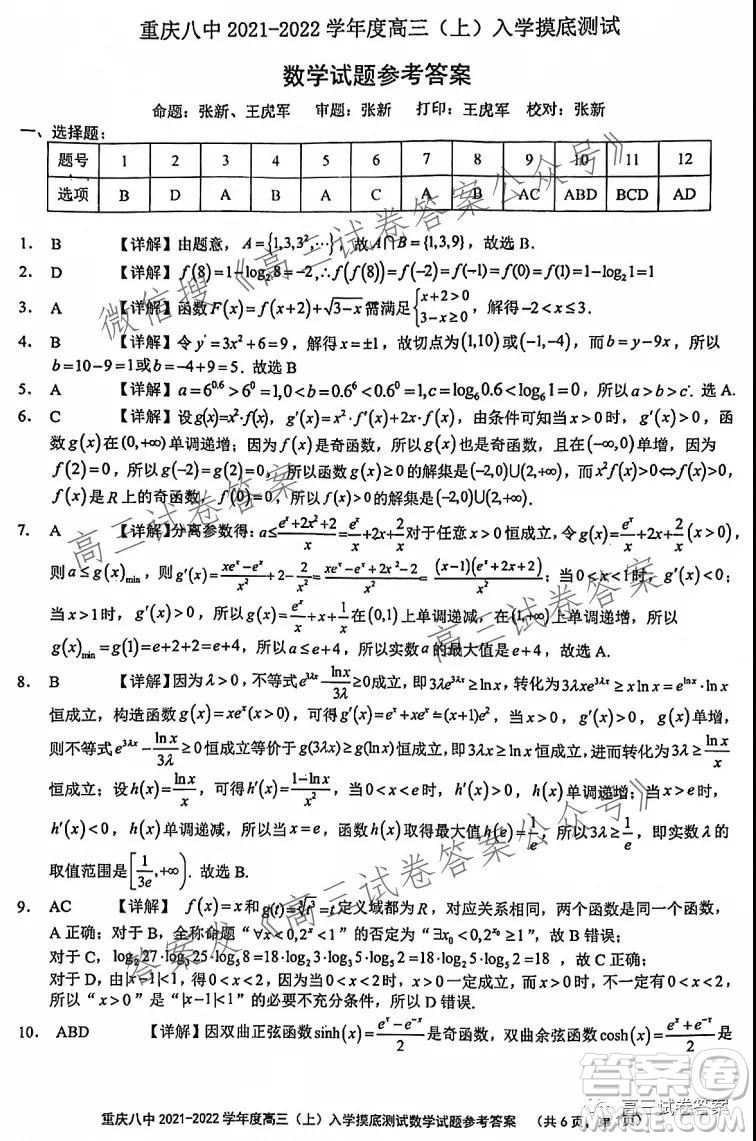 重庆八中 2021-2022 学年度高三（上）入学摸底测试
数学试题参考答案
命题：张新、王虎军　审题：张新　打印：王虎军　校对：张新
一、选择题：
题号 1 2 3 4 5 6 7 8 9 10 11 12
选项 B D A B A C A B AC ABD BCD AD
1. B 【详解】由题意，A={1,3,3²,⋯}，故A∩B={1,3,9}，故选 B.
2. D 【详解】f(8)=1−log₂8=−2,∴f(f(8))=f(−2)=f(−1)=f(0)=f(1)=1−log₂1=1
3. A 【详解】函数F(x)=f(x+2)+√(3−x)需满足{x+2>0, 3−x≥0，解得−2<x≤3.
4. B 【详解】令 y′=3x²+6=9，解得 x=±1，故切点为(1,10)或(−1,−4)，而b=y−9x，所以
b=10−9=1或b=−4+9=5. 故选 B
5. A 【详解】a=6^0.6>6⁰=1,0<b=0.6⁶<0.6⁰=1,c=log₆0.6<log₆1=0，所以a>b>c. 选 A.
6. C 【详解】设g(x)=x²·f(x)，g′(x)=x²·f′(x)+2x·f(x)，由条件可知当x>0时，g′(x)>0，函
数g(x)在(0,+∞)单调递增；因为f(x)是奇函数，所以g(x)也是奇函数，且在(−∞,0)单调递增．因为
f(2)=0，所以g(−2)=g(2)=0，所以函数g(x)≥0的解集是(−2,0)∪(2,+∞)，而x²f(x)>0⇔f(x)>0，
f(x)是R上的奇函数，f(0)=0，所以解集是(−2,0)∪(2,+∞).
7. A 【详解】分离参数得：a≤(eˣ+2x²+2)/x=eˣ/x+2x+2/x对于任意x>0恒成立，令g(x)=eˣ/x+2x+2/x(x>0)，
则a≤g(x)min，则g′(x)=(xeˣ−eˣ)/x²+2−2/x²=(xeˣ−eˣ+2x²−2)/x²=(x−1)(eˣ+2x+2)/x²；当0<x<1时，g′(x)<0；
当x>1时，g′(x)>0，所以g(x)=eˣ/x+x+1/x在(0,1)上单调递减，在(1,+∞)上单调递增，所以
g(x)min=g(1)=e+2+2=e+4，所以a≤e+4，所以实数a的最大值是e+4，故选 A.
8. B 【详解】因为λ>0，不等式e^(3λx)−lnx/3λ≥0成立，即3λe^(3λx)≥lnx，转化为3λxe^(3λx)≥xlnx=e^(lnx)·lnx
恒成立，构造函数g(x)=xeˣ(x>0)，可得g′(x)=eˣ+xeˣ=(x+1)eˣ，当x>0，g′(x)>0，g(x)单增，
则不等式e^(3λx)−lnx/3λ≥0恒成立等价于g(3λx)≥g(lnx)恒成立，即3λx≥lnx恒成立，进而转化为3λ≥lnx/x
恒成立；设h(x)=lnx/x，可得h′(x)=(1−lnx)/x²，当0<x<e时，h′(x)>0，h(x)单调递增；当x>e时，
h′(x)<0，h(x)单调递减，所以x=e，函数h(x)取得最大值h(e)=1/e，所以3λ≥1/e，即实数λ的
取值范围是[1/3e,+∞)．故选 B.
9. AC 【详解】 f(x)=x和g(t)=∛t³=t定义域都为R，对应关系相同，两个函数是同一个函数，
A 正确；对于 B，全称命题“∀x<0,2ˣ<1”的否定为“∃x₀<0,2^x₀≥1”，故 B 错误；
对于 C，log₂27·log₃25·log₅8=18·log₂3·log₃5·log₅2=18，故 C 正确；
对于 D，由|x−1|<1，得0<x<2，因为当0<x<2时，x>0一定成立，而x>0时，不一定有0<x<2，
所以“x>0”是“|x−1|<1”的必要不充分条件，所以 D 错误.
10. ABD 【详解】因双曲正弦函数sinh(x)=(eˣ−e⁻ˣ)/2是奇函数，双曲余弦函数cosh(x)=(eˣ+e⁻ˣ)/2是
重庆八中 2021-2022 学年度高三（上）入学摸底测试数学试题参考答案　（共 6 页，第 1 页）
微信搜《高三试卷答案公众号》
高三试卷答案
高三试卷答案
答案发《高三试卷答案公众号》
高三试卷答案